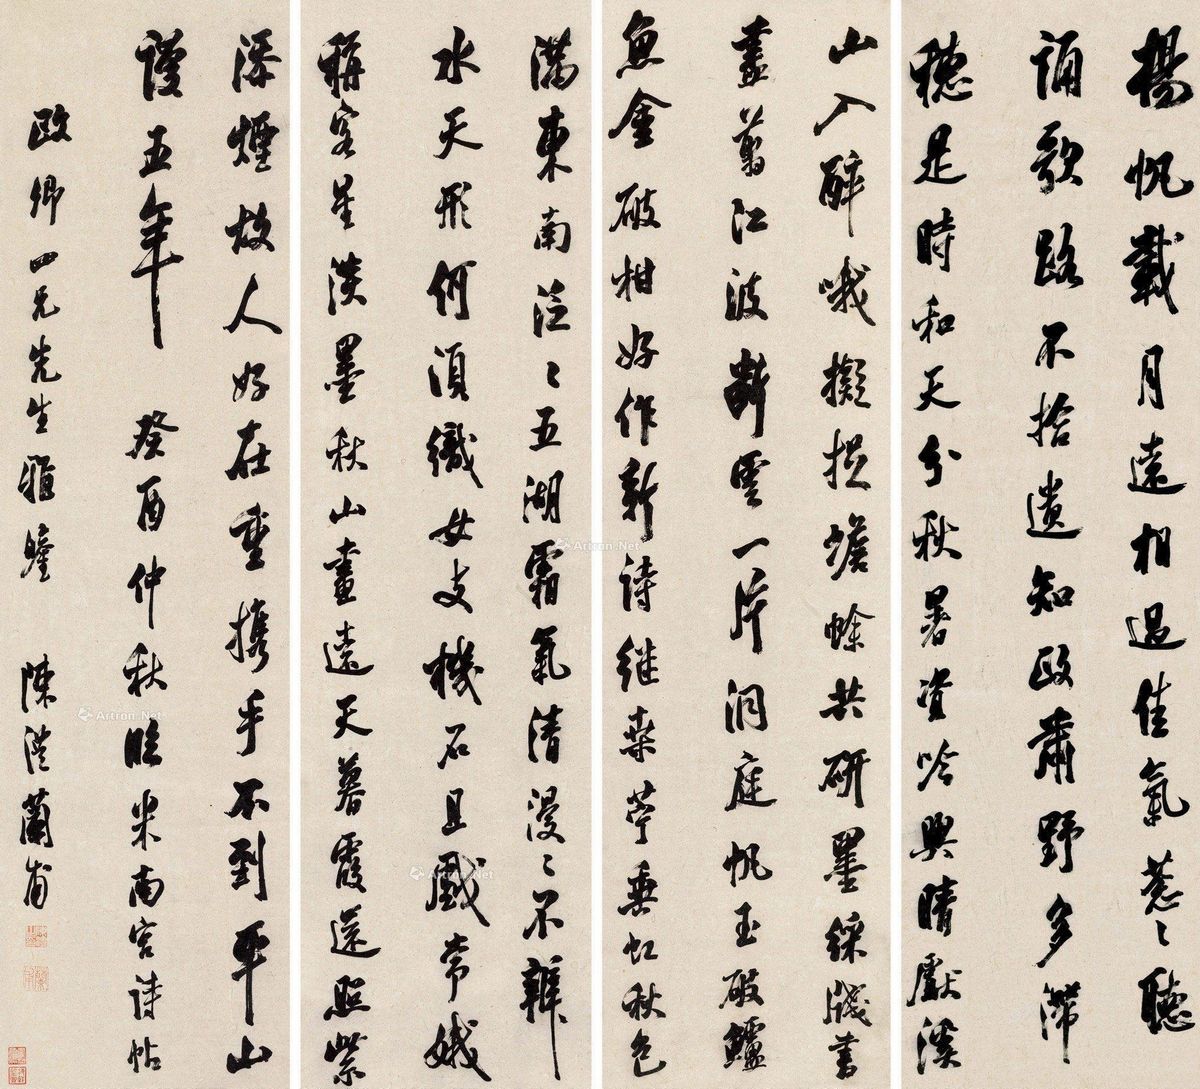 揚帆載月遠相過佳氣蔥〻聽
誦歌路不拾遺知政肅野多滯
穗是時和天分秋暑資吟興晴獻溪
山入醉哦擬捉蟾蜍共研墨綵牋書
盡剪江波斷雲一片洞庭帆玉破鱸
魚金破柑好作新詩繼桑苧垂虹秋色
滿東南泛〻五湖霜氣清漫〻不辨
水天形何須織女支機石且戲常娥
稱客星淡墨秋山畫遠天暮霞還照紫
添煙故人好在重攜手不到平山
謾五年 癸酉仲秋臨米南宮詩帖
歐卿四兄先生雅鑒 陳澧蘭甫
Artron.Net
Artron.Net
Artron.Net